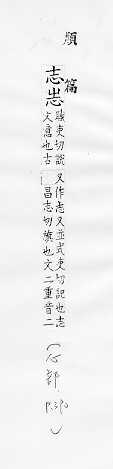 順
篇
志𢗍
職吏切說
文意也古
又作志又並式吏切記也志
昌志切旗也文二重音二
(心部
P.390)